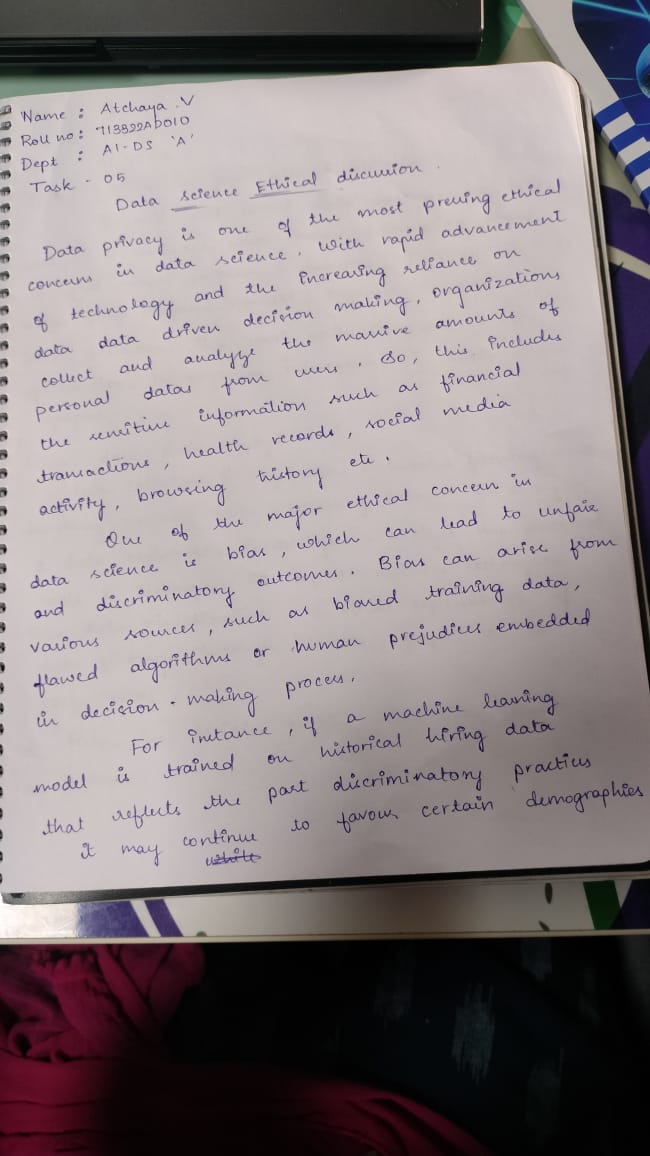 Name : Atchaya .V
Roll no : 713822AD010
Dept : AI-DS 'A'
Task - 05
Data science Ethical discussion .
Data privacy is one of the most pressing ethical
concerns in data science. With rapid advancement
of technology and the increasing reliance on
data data driven decision making, organizations
collect and analyze the massive amounts of
personal datas from users. So, this includes
the sensitive information such as financial
transactions, health records, social media
activity, browsing history etc.
One of the major ethical concern in
data science is bias, which can lead to unfair
and discriminatory outcomes. Bias can arise from
various sources, such as biased training data,
flawed algorithms or human prejudices embedded
in decision - making process.
For instance, if a machine learning
model is trained on historical hiring data
that reflects the past discriminatory practices
it may continue to favour certain demographies
while